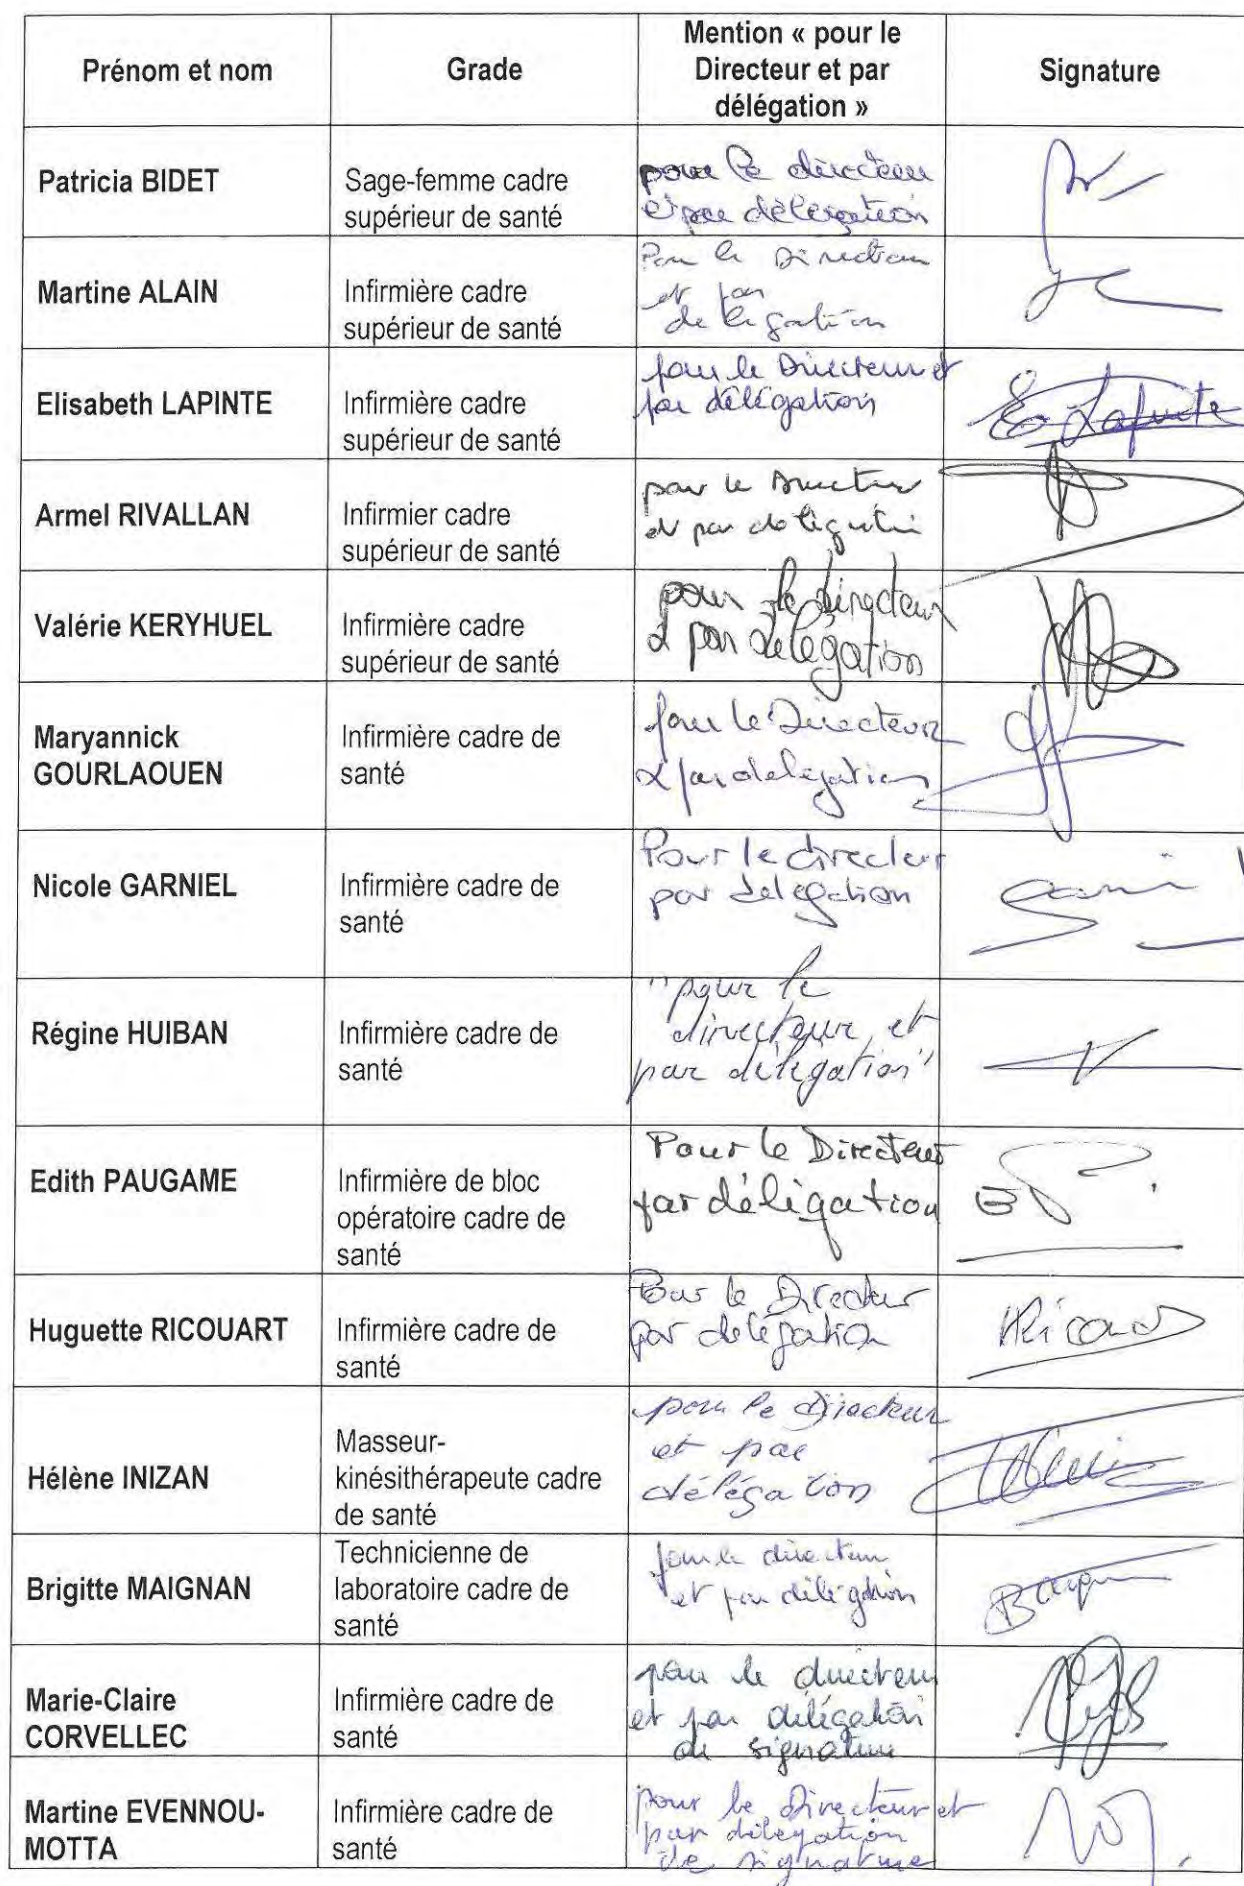 Prénom et nom
Grade
Mention « pour le
Directeur et par
délégation »
Signature
Patricia BIDET
Sage-femme cadre
supérieur de santé
pour le directeur
et par délégation
Martine ALAIN
Infirmière cadre
supérieur de santé
Pour le Directeur
et par
délégation
Elisabeth LAPINTE
Infirmière cadre
supérieur de santé
pour le Directeur et
par délégation
E Lapinte
Armel RIVALLAN
Infirmier cadre
supérieur de santé
pour le Directeur
et par délégation
Valérie KERYHUEL
Infirmière cadre
supérieur de santé
pour le Directeur
& par délégation
Maryannick
GOURLAOUEN
Infirmière cadre de
santé
pour le Directeur
& par delegation
Nicole GARNIEL
Infirmière cadre de
santé
Pour le directeur
par delegation
Régine HUIBAN
Infirmière cadre de
santé
"pour le
directeur et
par délégation"
Edith PAUGAME
Infirmière de bloc
opératoire cadre de
santé
Pour le Directeur
par délégation
Huguette RICOUART
Infirmière cadre de
santé
Pour le Directeur
par delégation
Hélène INIZAN
Masseur-
kinésithérapeute cadre
de santé
pour le directeur
et par
délégation
Brigitte MAIGNAN
Technicienne de
laboratoire cadre de
santé
pour le directeur
et par délégation
Marie-Claire
CORVELLEC
Infirmière cadre de
santé
pour le directeur
et par délégation
de signature
Martine EVENNOU-
MOTTA
Infirmière cadre de
santé
pour le Directeur et
par délégation
de signature